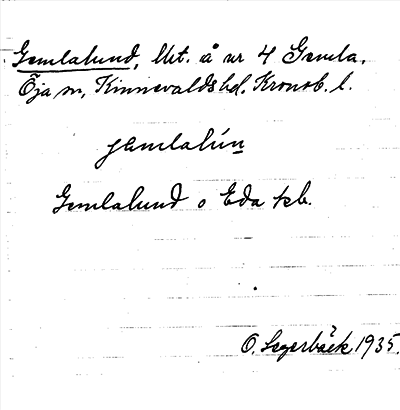 Gemlalund, lht. å nr 4 Gemla,
Öja sn, Kinnevalds hd, Kronob. l.
jæmlalún
Gemlalund o Eda kb.
O. Segerbäck 1935.